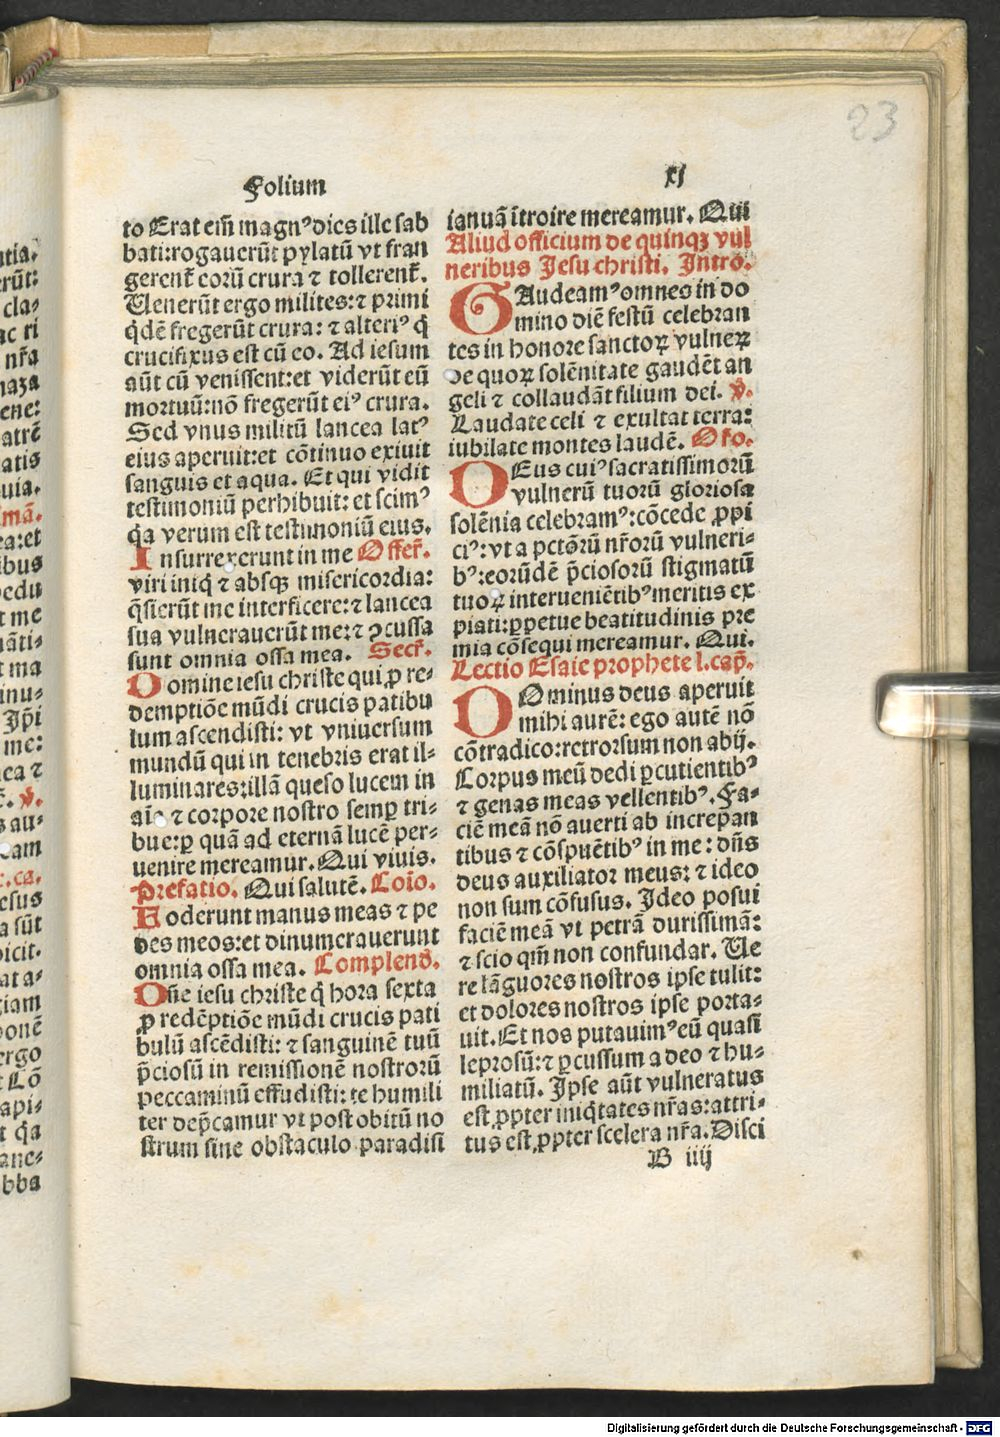 23
Folium xj
to Erat em̄ magnꝰ dies ille sab
bati: rogauerūt pylatū vt fran
gerent̄ eorū crura ⁊ tollerent̄.
Uenerūt ergo milites: ⁊ primi
q̇dē fregerūt crura: ⁊ alteriꝰ q̇
crucifixus est cū eo. Ad iesum
aūt cū venissent: et viderūt eū
mortuū: nō fregerūt eiꝰ crura.
Sed vnus militū lancea latꝰ
eius aperuit: et cōtinuo exiuit
sanguis et aqua. Et qui vidit
testimoniū perhibuit: et scimꝰ
q̄a verum est testimoniū eius.
Insurrexerunt in me Offer̄.
viri iniq̇ ⁊ absqꝫ misericordia:
q̄sierūt me interficere: ⁊ lancea
sua vulnerauerūt me: ⁊ ꝯcussa
sunt omnia ossa mea. Secr̄.
Domine iesu christe qui ꝓ re-
demptiōe mūdi crucis patibu
lum ascendisti: vt vniuersum
mundū qui in tenebris erat il-
luminares: illā queso lucem in
aīa ⁊ corpore nostro semꝑ tri-
bue: ꝑ quā ad eternā lucē per-
uenire mereamur. Qui viuis.
Prefatio. Qui salutē. Cōio.
Foderunt manus meas ⁊ pe
des meos: et dinumerauerunt
omnia ossa mea. Complend̄.
Dn̄e iesu christe q̇ hora sexta
ꝓ redēptiōe mūdi crucis pati
bulū ascēdisti: ⁊ sanguinē tuū
p̄ciosū in remissionē nostrorū
peccaminū effudisti: te humili
ter dep̄camur vt post obitū no
strum sine obstaculo paradisi
ianuā ītroire mereamur. Qui
Aliud officium de quinqꝫ vul
neribus Jesu christi. Intro.
GAudeamꝰ omnes in do
mino diē festū celebran
tes in honore sanctoꝝ vulneꝝ
de quoꝝ solēnitate gaudēt an
geli ⁊ collaudāt filium dei. v̄.
Laudate celi ⁊ exultat terra:
iubilate montes laudē. Oro.
DEus cuiꝰ sacratissimorū
vulnerū tuorū gloriosa
solēnia celebramꝰ: cōcede ꝓpi
ciꝰ: vt a pctōrū nr̄orū vulneri-
bꝰ: eorūdē p̄ciosorū stigmatū
tuoꝝ interueniētibꝰ meritis ex
piati: ꝑpetue beatitudinis pre
mia cōsequi mereamur. Qui.
Lectio Esaie prophete l. cap̄.
DOminus deus aperuit
mihi aurē: ego autē nō
cōtradico: retrorsum non abij.
Corpus meū dedi ꝑcutientibꝰ
⁊ genas meas vellentibꝰ. Fa-
ciē meā nō auerti ab increpan
tibus ⁊ cōspuētibꝰ in me: dn̄s
deus auxiliator meus: ⁊ ideo
non sum cōfusus. Ideo posui
faciē meā vt petrā durissimā:
⁊ scio qm̄ non confundar. Ue
re lāguores nostros ipse tulit:
et dolores nostros ipse porta-
uit. Et nos putauimꝰ eū quasi
leprosū: ⁊ ꝑcussum a deo ⁊ hu-
miliatū. Ipse aūt vulneratus
est ꝓpter iniq̇tates nr̄as: attri-
tus est ꝓpter scelera nr̄a. Disci
B iiij
Digitalisierung gefördert durch die Deutsche Forschungsgemeinschaft - DFG